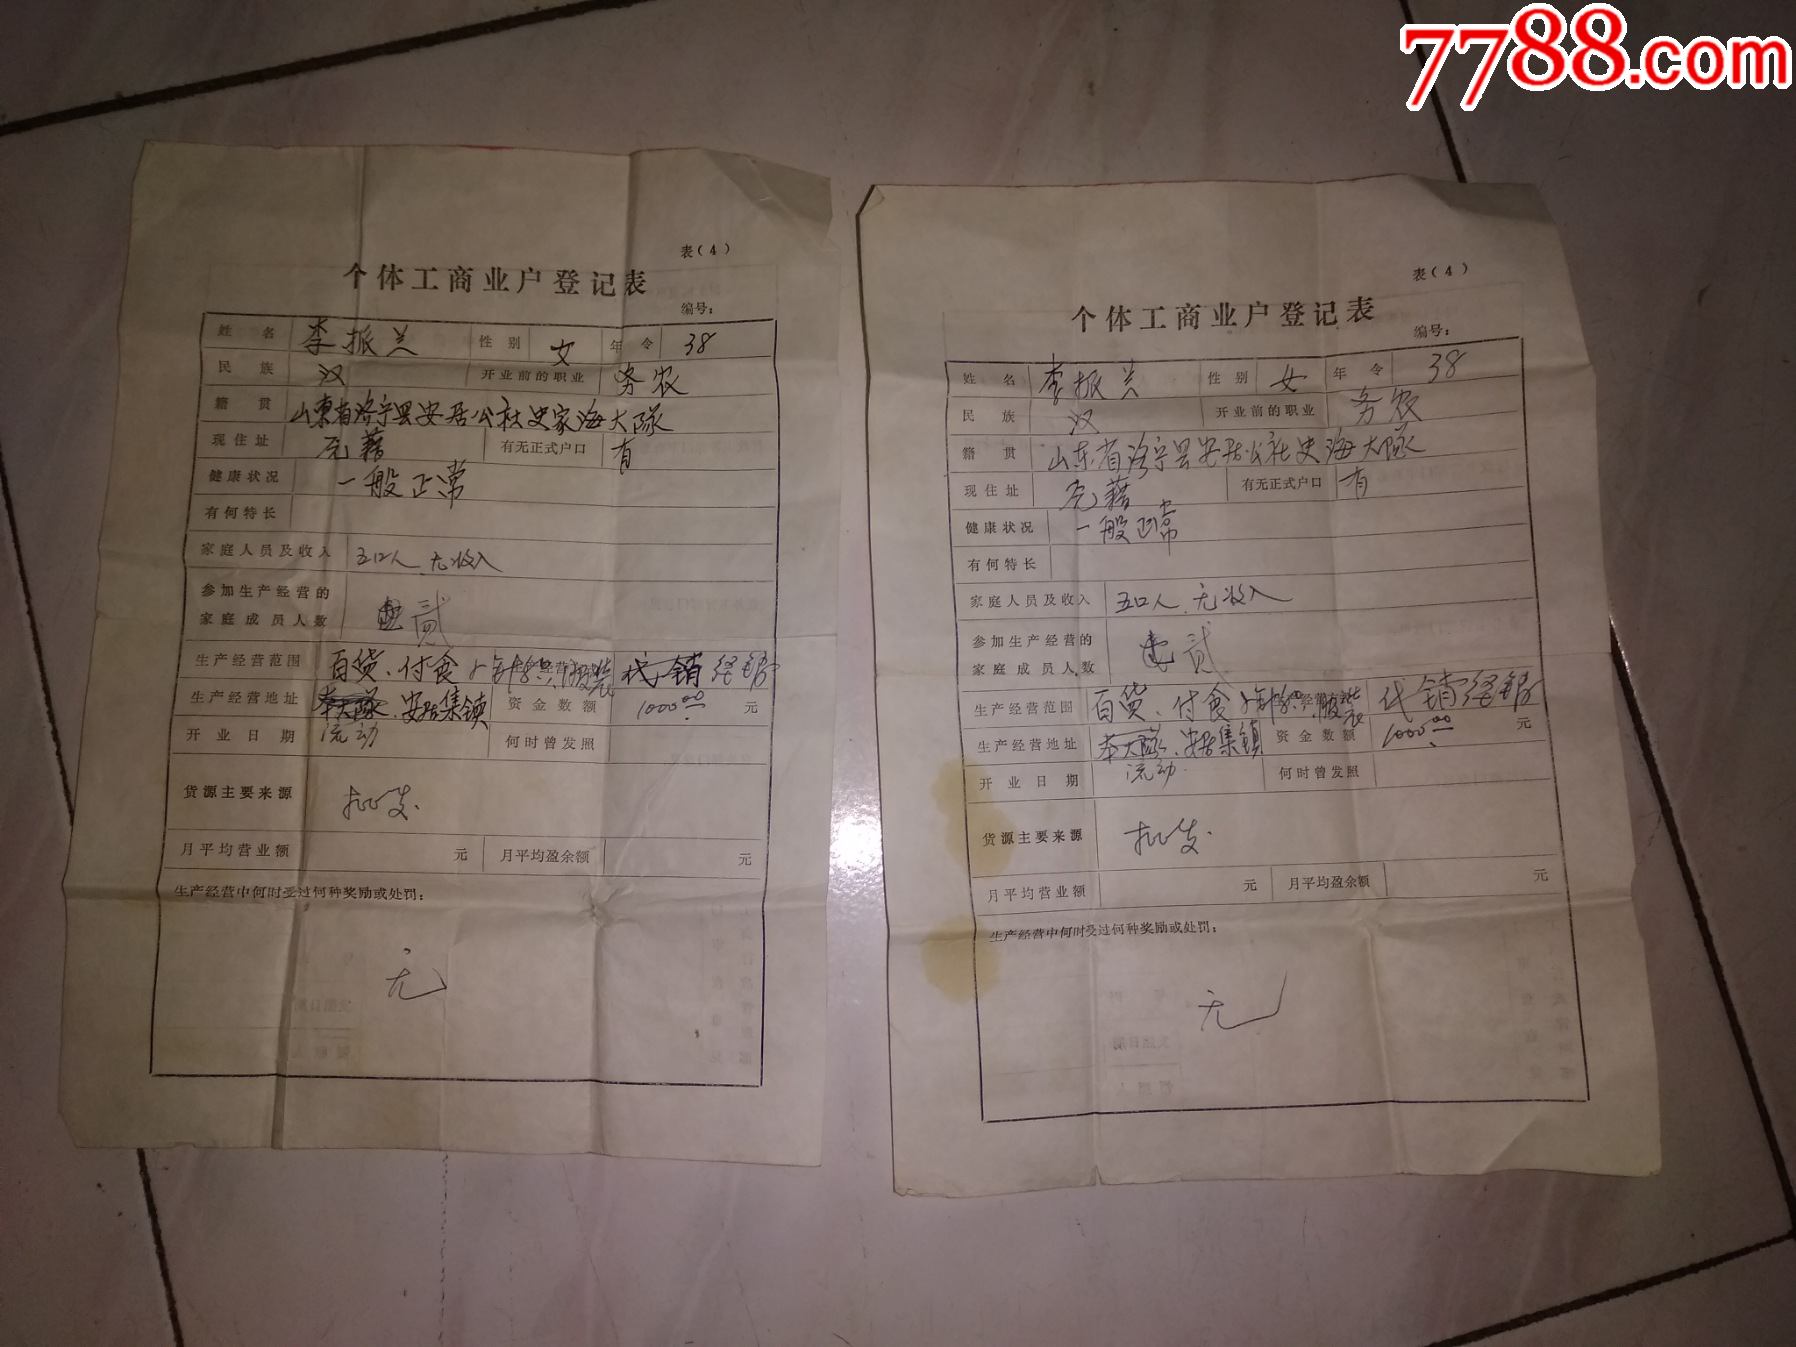 7788.com
表（4）
个体工商业户登记表
编号：
姓名 李振兰 性别 女 年令 38
民族 汉 开业前的职业 务农
籍贯 山东省济宁县安居公社史家海大队
现住址 元籍 有无正式户口 有
健康状况 一般正常
有何特长
家庭人员及收入 五口人、无收入
参加生产经营的
家庭成员人数 贰
生产经营范围 百货、付食 经营 服装 代销 经销
生产经营地址 本大队、安居集镇 资金数额 1000.00 元
流动
开业日期 何时曾发照
货源主要来源 批发
月平均营业额 元 月平均盈余额 元
生产经营中何时受过何种奖励或处罚：
无
表（4）
个体工商业户登记表
编号：
姓名 李振兰 性别 女 年令 38
民族 汉 开业前的职业 务农
籍贯 山东省济宁县安居公社史海大队
现住址 元籍 有无正式户口 有
健康状况 一般正常
有何特长
家庭人员及收入 五口人、无收入
参加生产经营的
家庭成员人数 贰
生产经营范围 百货、付食 经营 服装 代销 经销
生产经营地址 本大队、安居集镇 资金数额 1000.00 元
流动
开业日期 何时曾发照
货源主要来源 批发
月平均营业额 元 月平均盈余额 元
生产经营中何时受过何种奖励或处罚：
无